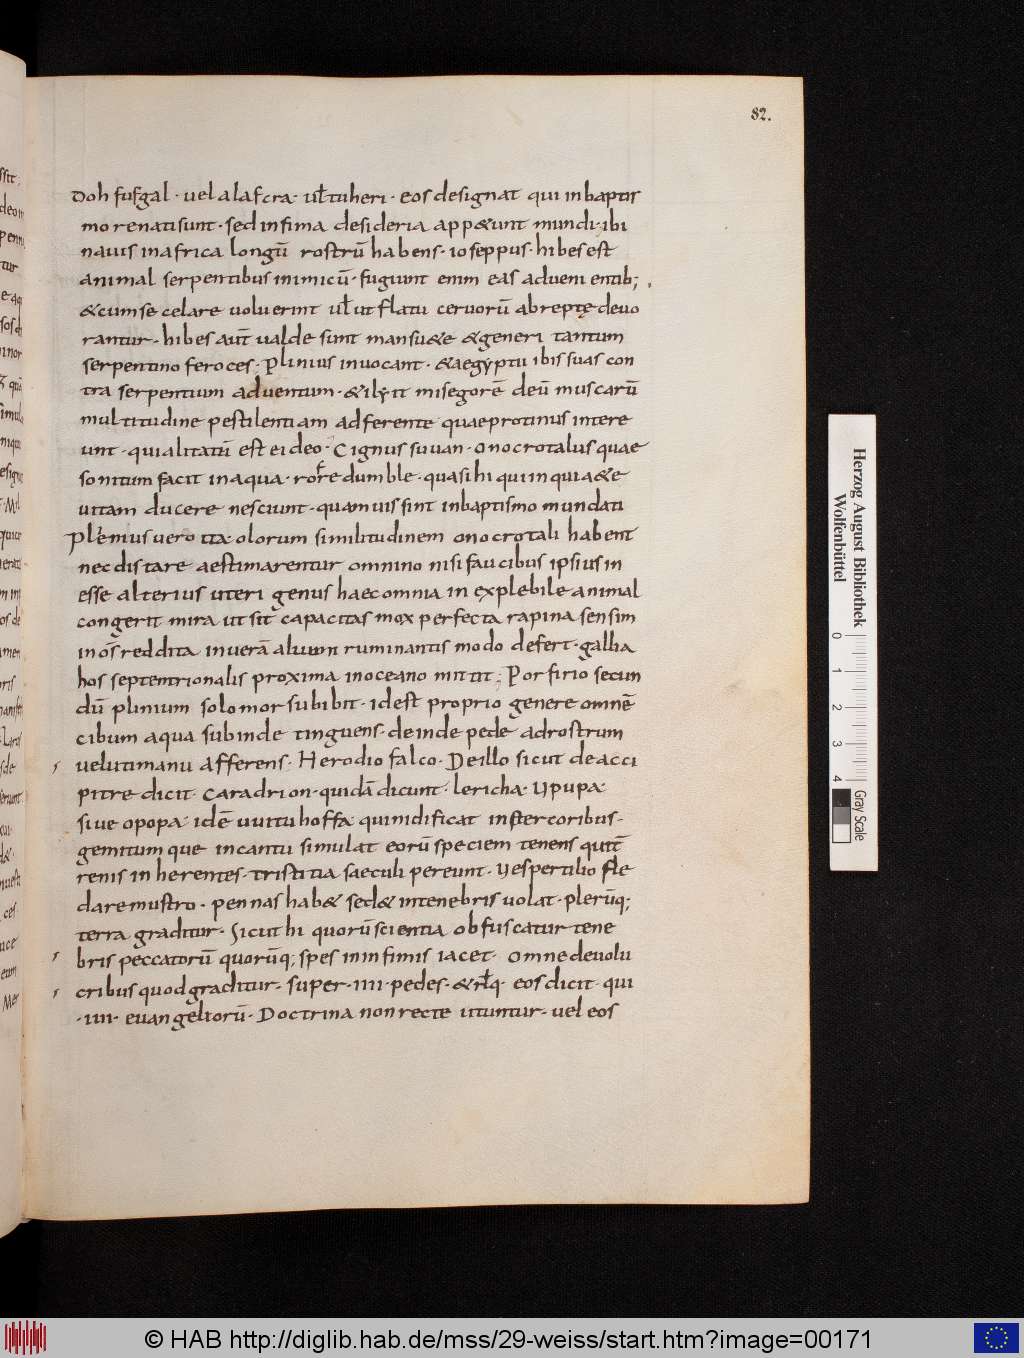 82.
doh fufgal · uel alafcra · uƚ tuheri · eos designat qui in baptis
mo renati sunt · sed infima desideria app&unt mundi · ibi
nauis in africa longū rostrū habens · ioseppus · hibes est
animal serpentibus inimicū · fugiunt enim eas adueni entib;
& cum se celare uoluerint uƚ ut flatu ceruorū abreptę deuo
rantur · hibes aūt ualde sunt mansu&e & generi tantum
serpentino feroces · Plinius inuocant · & aegyptu ibis suas con
tra serpentium aduentum · & ilyit misegorē deū muscarū
multitudine pestilentiam adferente quae protinus intere
unt · qui alitatū est ei deo · Cignus suuan · onocrotalus quae
sonitum facit in aqua · rore dumble · quasi hi qui in quia&e
uitam ducere nesciunt · quamuis sint in baptismo mundati
Plenius uero ita olorum similitudinem onocrotali habent
nec distare aestimarentur omnino nisi faucibus ipsius in
esse alterius uteri genus haec omnia in explebile animal
congerit mira ut sit capacitas mox perfecta rapina sensim
in os̄ reddita in uerā aluum ruminantis modo defert · gallia
hos septentrionalis proxima in oceano mittit ; Porfirio secun
dū plinium solo morsu bibit · idest proprio genere omnē
cibum aqua subinde tinguens · deinde pede ad rostrum
uelut manu afferens · Herodio falco · De illo sicut de acci
pitre dicit · Caradrion · quidā dicunt · lericha · Upupa
siue opopa idē uuituhoffa qui nidificat in stercoribus ·
gemitum que in cantu simulat eorū speciem tenens qui t̄
renis inherentes · tristitia saeculi pereunt · Uespertilio fle
dare mustro · pennas hab& sed & in tenebris uolat · plerūq;
terra graditur · Sicut hi quorū scientia obfuscatur tene
bris peccatorū quorūq; spes in infimis iacet · Omne de uolu
cribus quod graditur · super · iiii · pedes · & rƚq · eos dicit · qui
· iiii · euangeliorū · Doctrina non recte utuntur · uel eos
Herzog August Bibliothek
Wolfenbüttel
0 1 2 3 4
Gray Scale
© HAB http://diglib.hab.de/mss/29-weiss/start.htm?image=00171